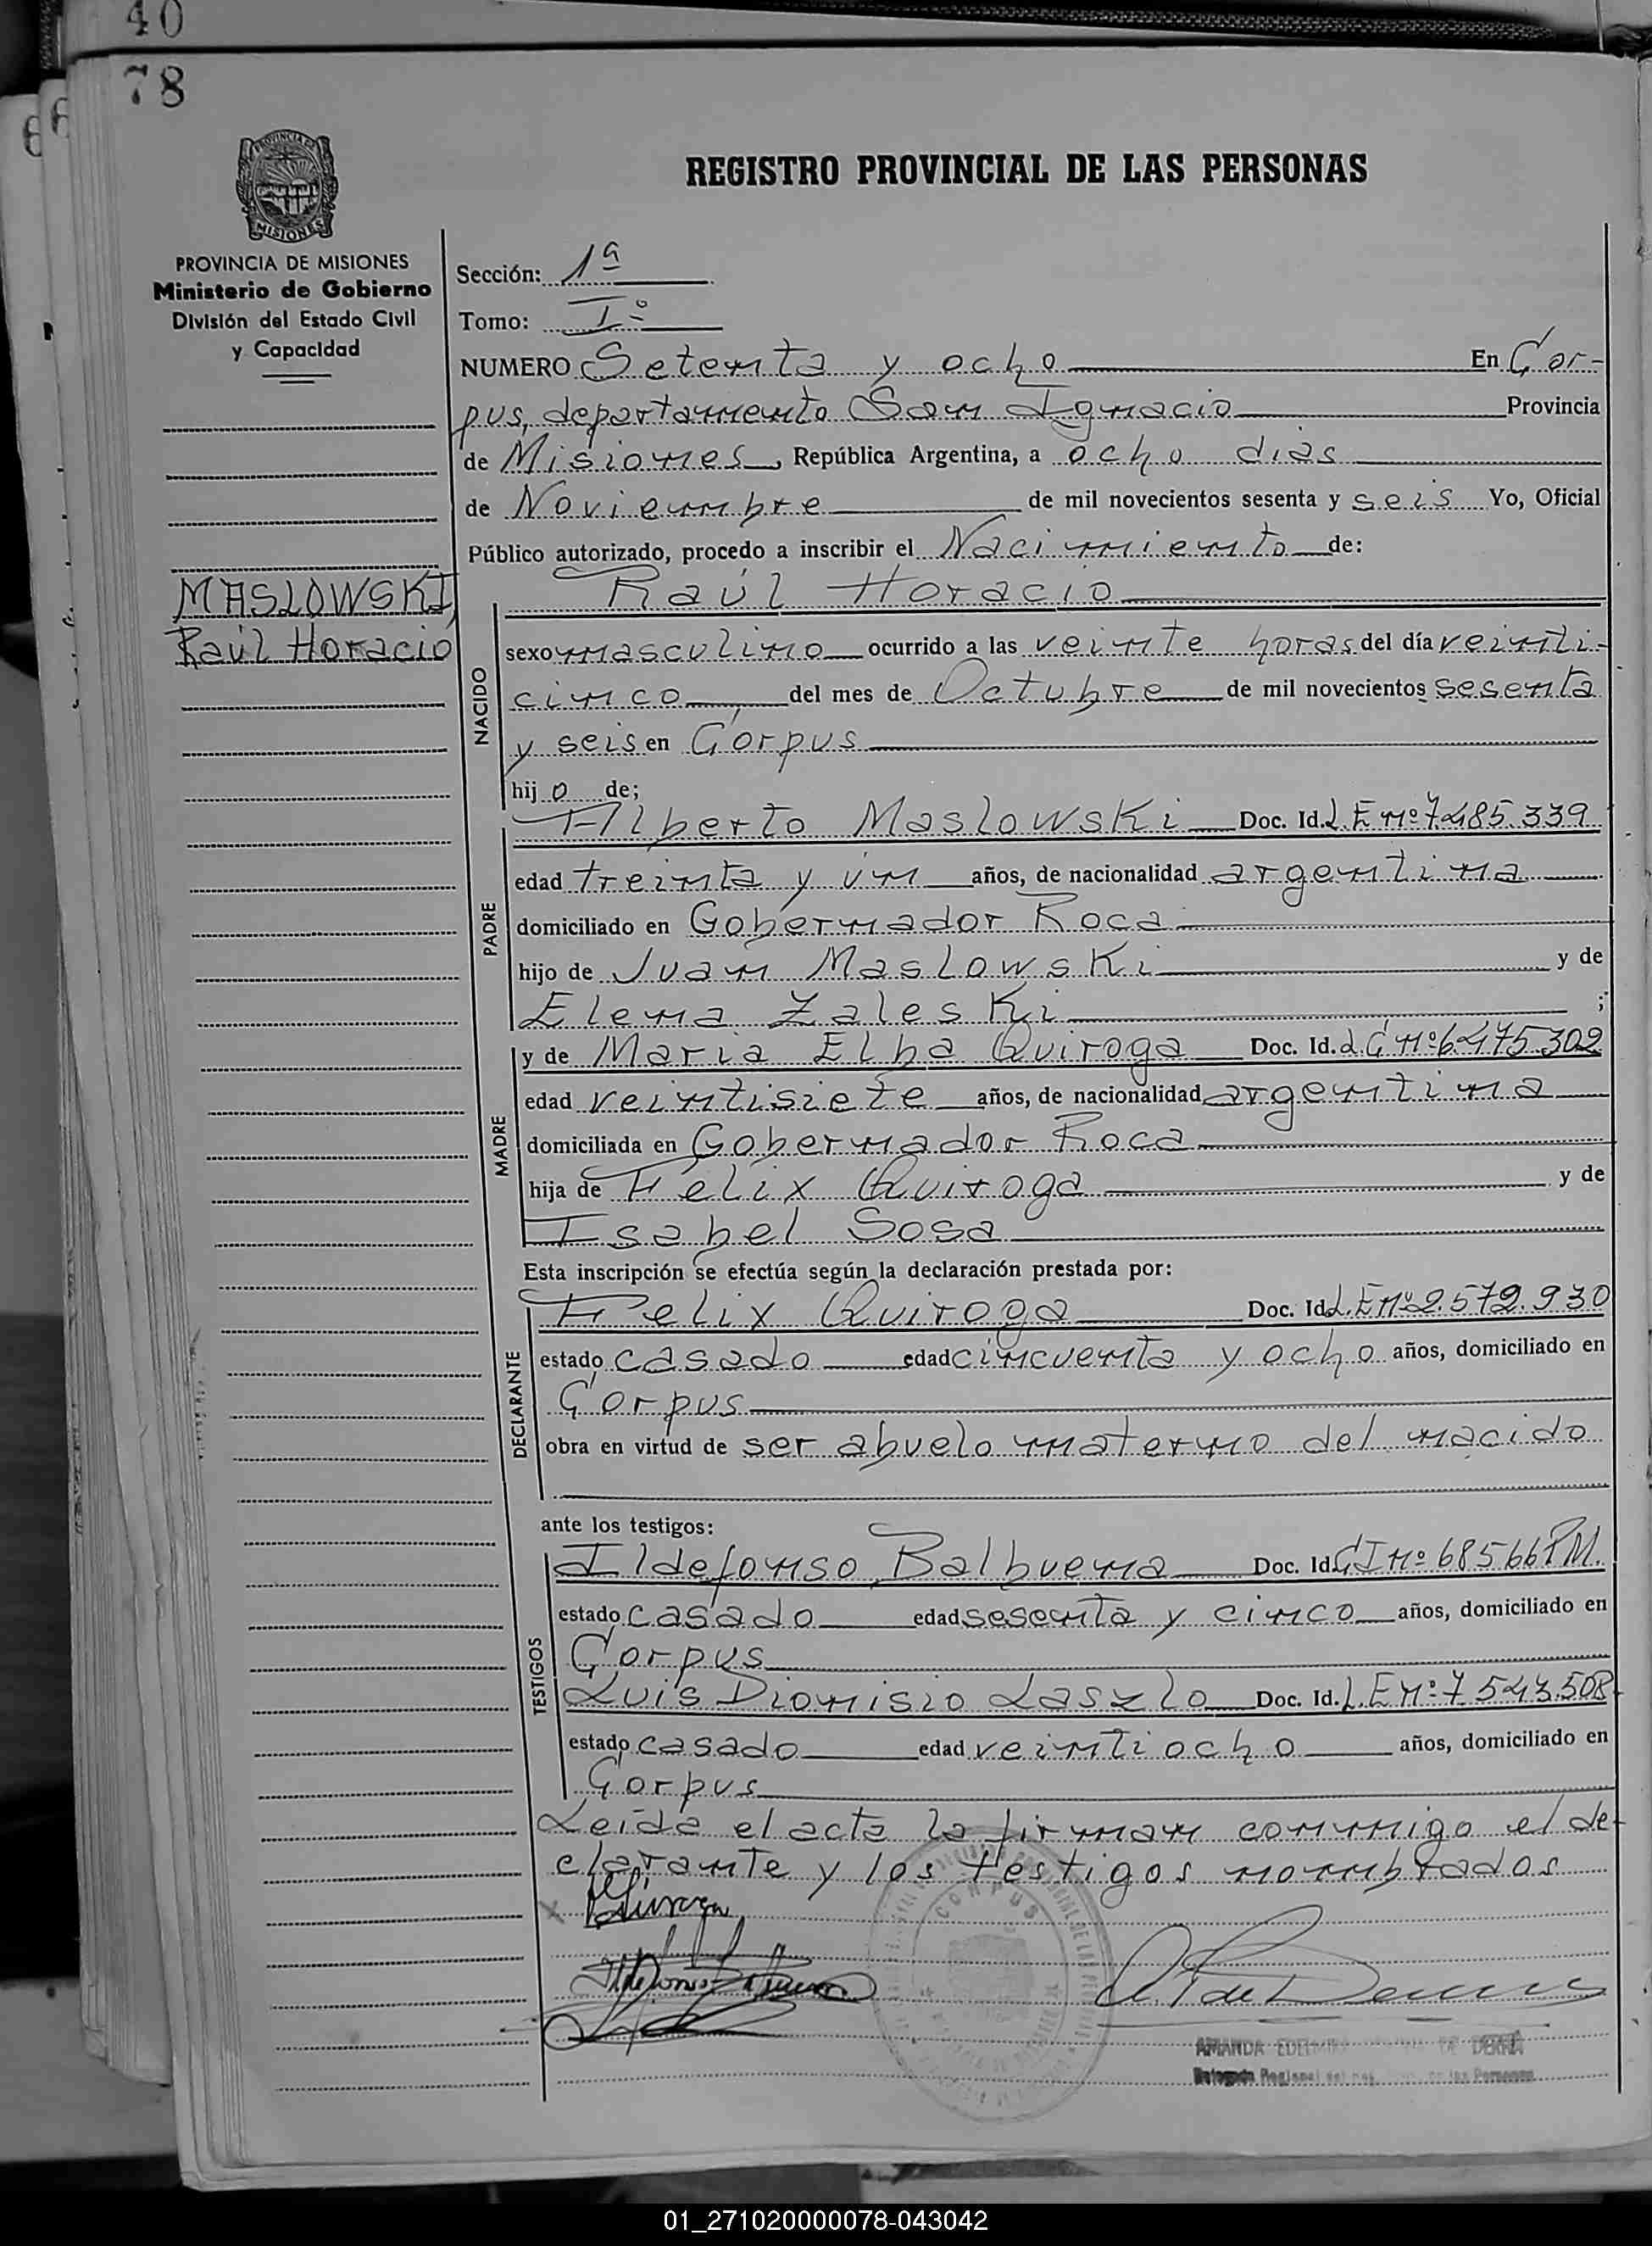 40
78
PROVINCIA DE
MISIONES
REGISTRO PROVINCIAL DE LAS PERSONAS
PROVINCIA DE MISIONES
Ministerio de Gobierno
División del Estado Civil
y Capacidad
Sección: 1ª
Tomo: Iº
NUMERO Setenta y ocho En Cor-
pus, departamento San Ignacio Provincia
de Misiones, República Argentina, a ocho dias
de Noviembre de mil novecientos sesenta y seis Yo, Oficial
Público autorizado, procedo a inscribir el Nacimiento de:
MASLOWSKI,
Raúl Horacio
NACIDO
Raúl Horacio
sexo masculino ocurrido a las veinte horas del día veinti-
cinco del mes de Octubre de mil novecientos sesenta
y seis en Corpus
hijo de;
PADRE
Alberto Maslowski Doc. Id. L.E nº 7.485.339
edad treinta y un años, de nacionalidad argentina
domiciliado en Gobernador Roca
hijo de Juan Maslowski y de
Elena Zaleski ;
MADRE
y de Maria Elba Quiroga Doc. Id. L.C nº 6.475.302
edad veintisiete años, de nacionalidad argentina
domiciliada en Gobernador Roca
hija de Felix Quiroga y de
Isabel Sosa
Esta inscripción se efectúa según la declaración prestada por:
DECLARANTE
Felix Quiroga Doc. Id. L.E nº 2.572.930
estado casado edad cincuenta y ocho años, domiciliado en
Corpus
obra en virtud de ser abuelo materno del nacido
ante los testigos:
TESTIGOS
Ildefonso Balbuena Doc. Id. CI nº 68566 PM.
estado casado edad sesenta y cinco años, domiciliado en
Corpus
Luis Dionisio Laszlo Doc. Id. L.E nº 7543.508
estado casado edad veintiocho años, domiciliado en
Corpus
Leida el acta la firman conmigo el de
clarante y los testigos nombrados
CORPUS
AMANDA DE DERNA
Delegada Regional de las Personas
01_271020000078-043042